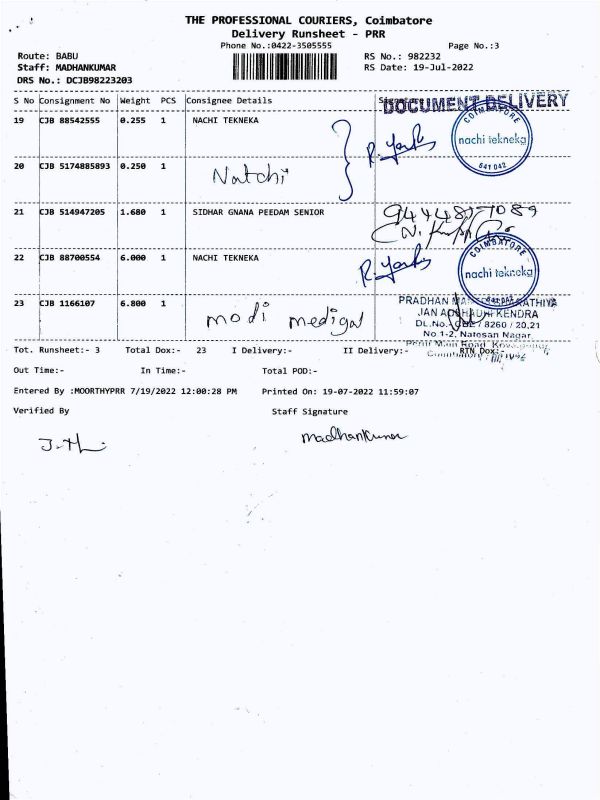 THE PROFESSIONAL COURIERS, Coimbatore
Delivery Runsheet - PRR
Phone No.:0422-3505555 Page No.:3
Route: BABU RS No.: 982232
Staff: MADHANKUMAR RS Date: 19-Jul-2022
DRS No.: DCJB98223203
S No Consignment No Weight PCS Consignee Details
DOCUMENT DELIVERY
19 CJB 88542555 0.255 1 NACHI TEKNEKA
COIMBATORE
nachi teknekg
641 042
20 CJB 5174885893 0.250 1 Natchi
21 CJB 514947205 1.680 1 SIDHAR GNANA PEEDAM SENIOR
22 CJB 88700554 6.000 1 NACHI TEKNEKA
COIMBATORE
nachi teknekg
641 042
23 CJB 1166107 6.800 1 modi medigal
PRADHAN
JAN AUSHADHI KENDRA
DL.No. CBE / 8260 / 20,21
No 1-2, Natesan Nagar
Tot. Runsheet:- 3 Total Dox:- 23 I Delivery:- II Delivery:- RTN Dox:-
Out Time:- In Time:- Total POD:-
Entered By :MOORTHYPRR 7/19/2022 12:00:28 PM Printed On: 19-07-2022 11:59:07
Verified By Staff Signature
Madhankumar